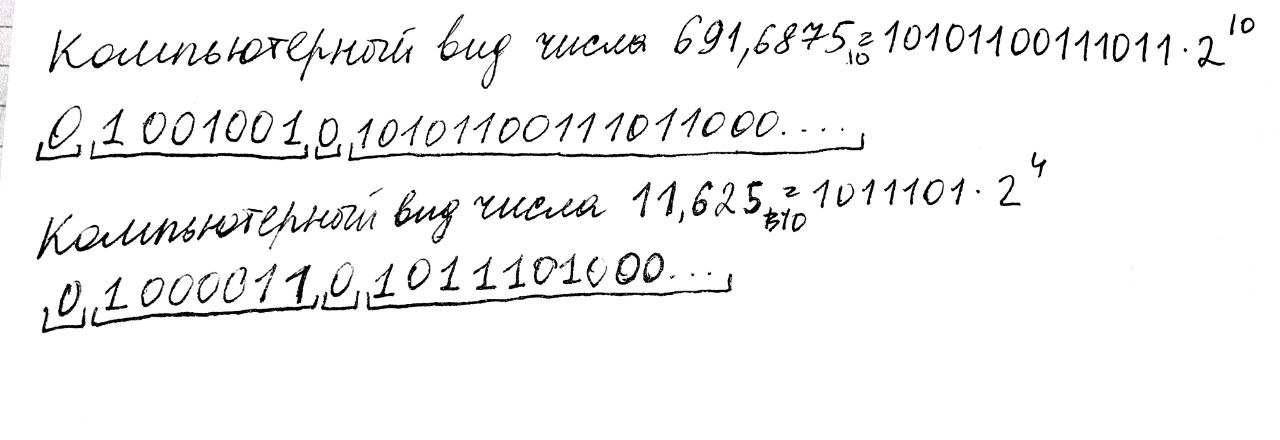 Компьютерный вид числа 691,6875₁₀=10101100111011·2¹⁰
0 1001001 0 10101100111011000....
Компьютерный вид числа 11,625в10=1011101·2⁴
0 1000011 0 1011101000...